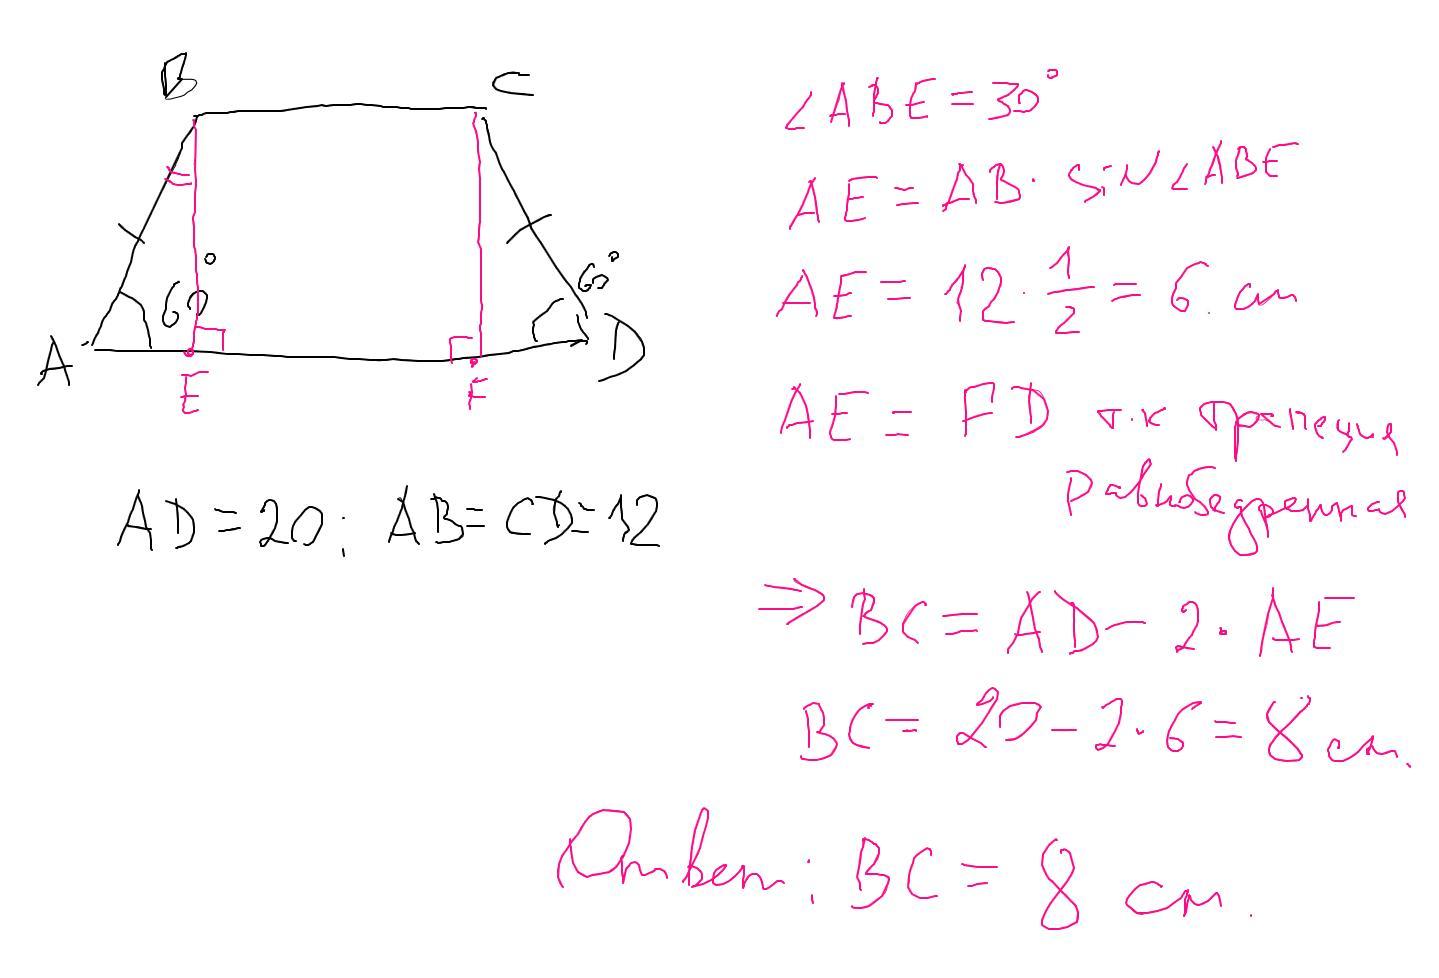 B C
60° 60°
A E F D
AD = 20; AB = CD = 12
∠ABE = 30°
AE = AB · sin∠ABE
AE = 12 · 1/2 = 6. см
AE = FD т.к трапеция
равнобедренная
⇒ BC = AD - 2 · AE
BC = 20 - 2 · 6 = 8 см.
Ответ: BC = 8 см.